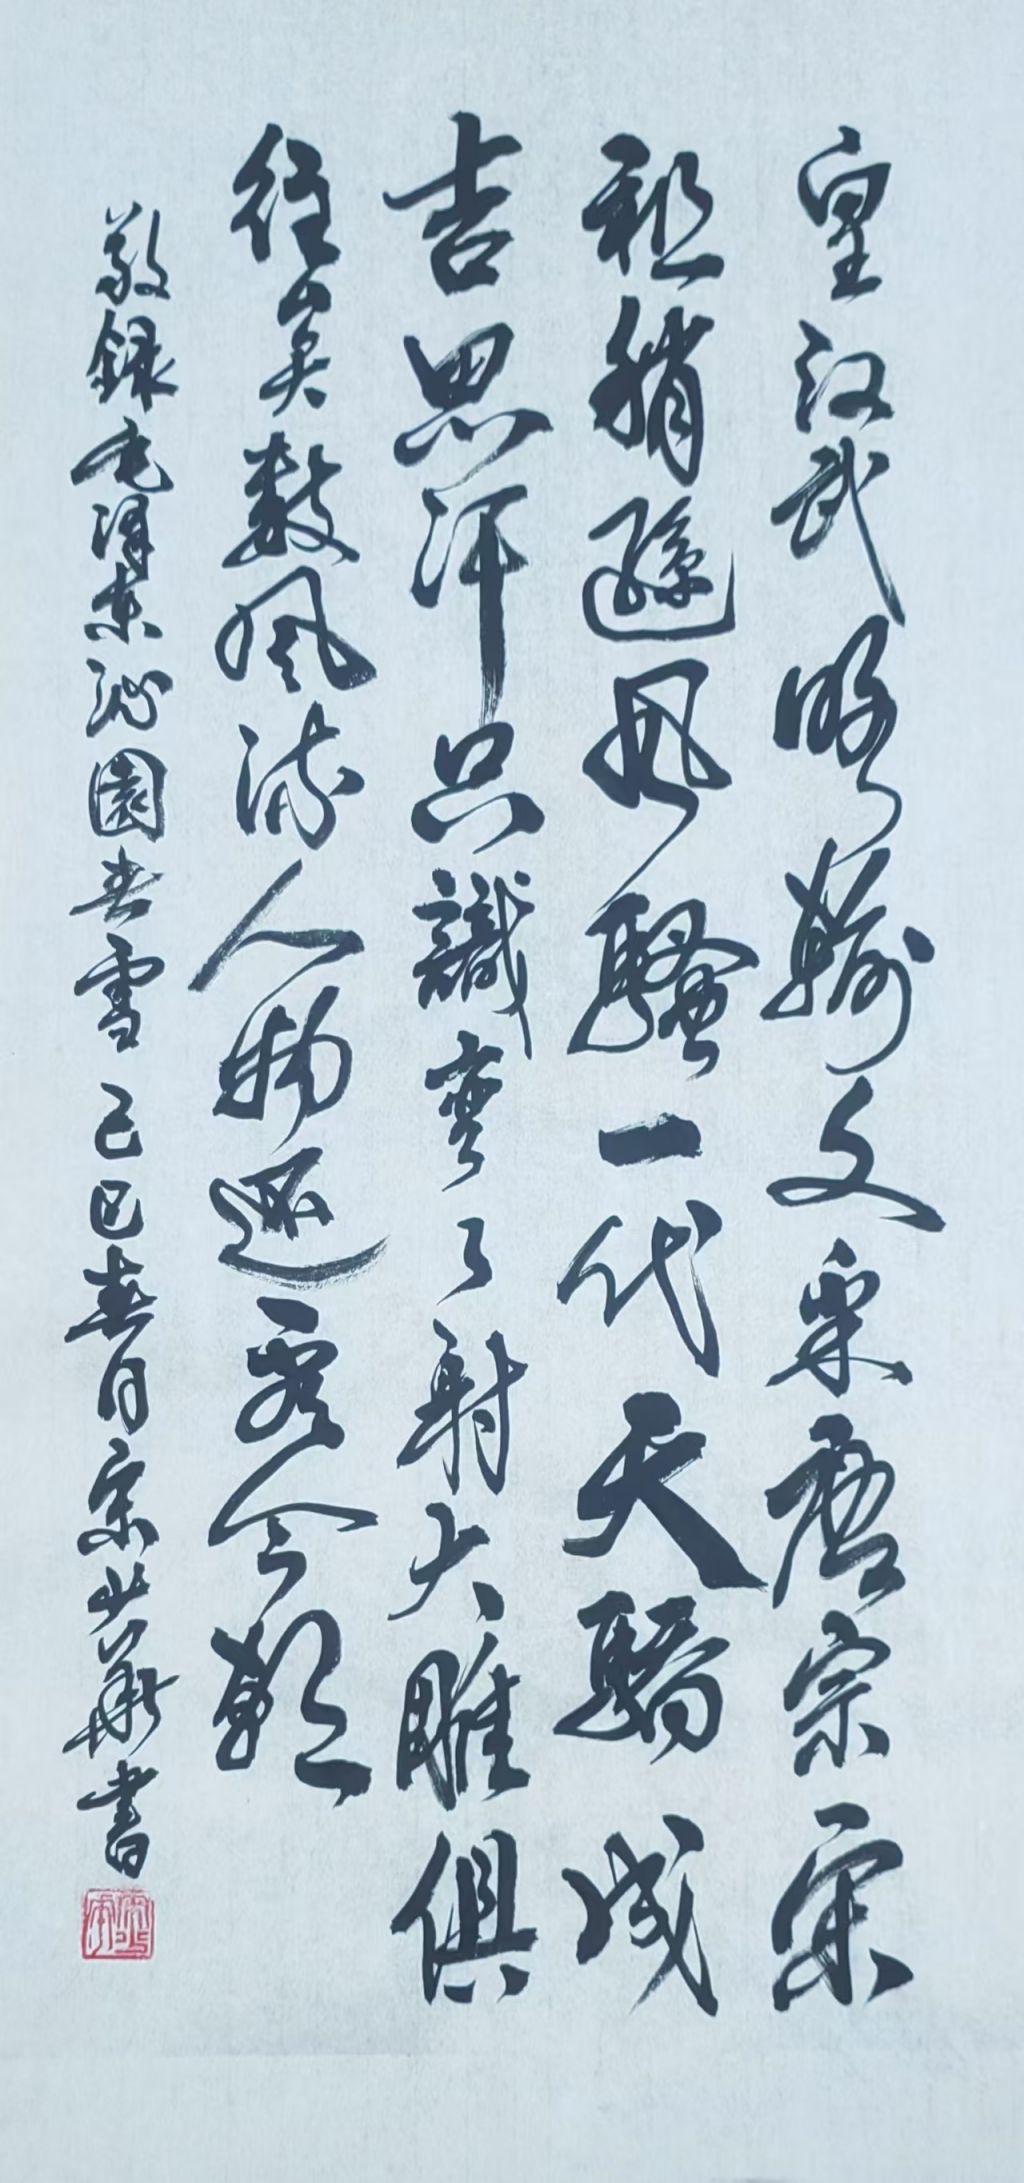 皇汉武略输文采唐宗宋
祖稍遜风騷一代天驕成
吉思汗只識弯弓射大雕俱
往矣数风流人物还看今朝
敬録毛泽东沁園春雪己巳春月宗華書